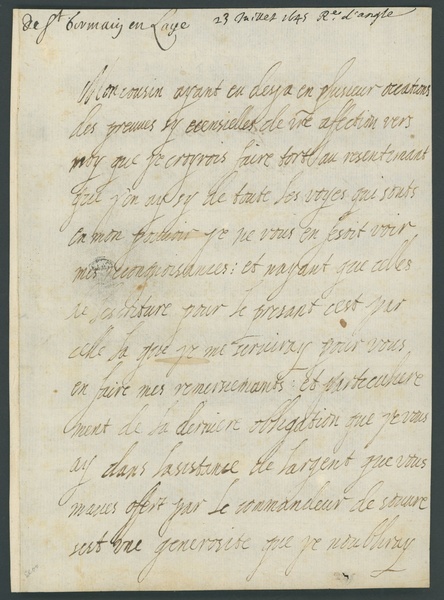 de St Germain en Laye 23 Juillet 1645 Re. d'angle
Mon cousin ayant eu desja en plusieur ocations
des preuves sy ecensielles de vre affection vers
moy que je croyrois faire tort au resentimant
que j'en ay sy de toute les voyes qui sonts
en mon pouvoir je ne vous en fesoit voir
mes reconnoisances: et nayant que celles
de lescriture pour le presant cest par
celle la que je me serviray pour vous
en faire mes remersiemants: et particuliere
ment de la derniere obligation que je vous
ay dans lasistance de largent que vous
maves offert par le commandeur de souvre
sest une generosite que je noubliray